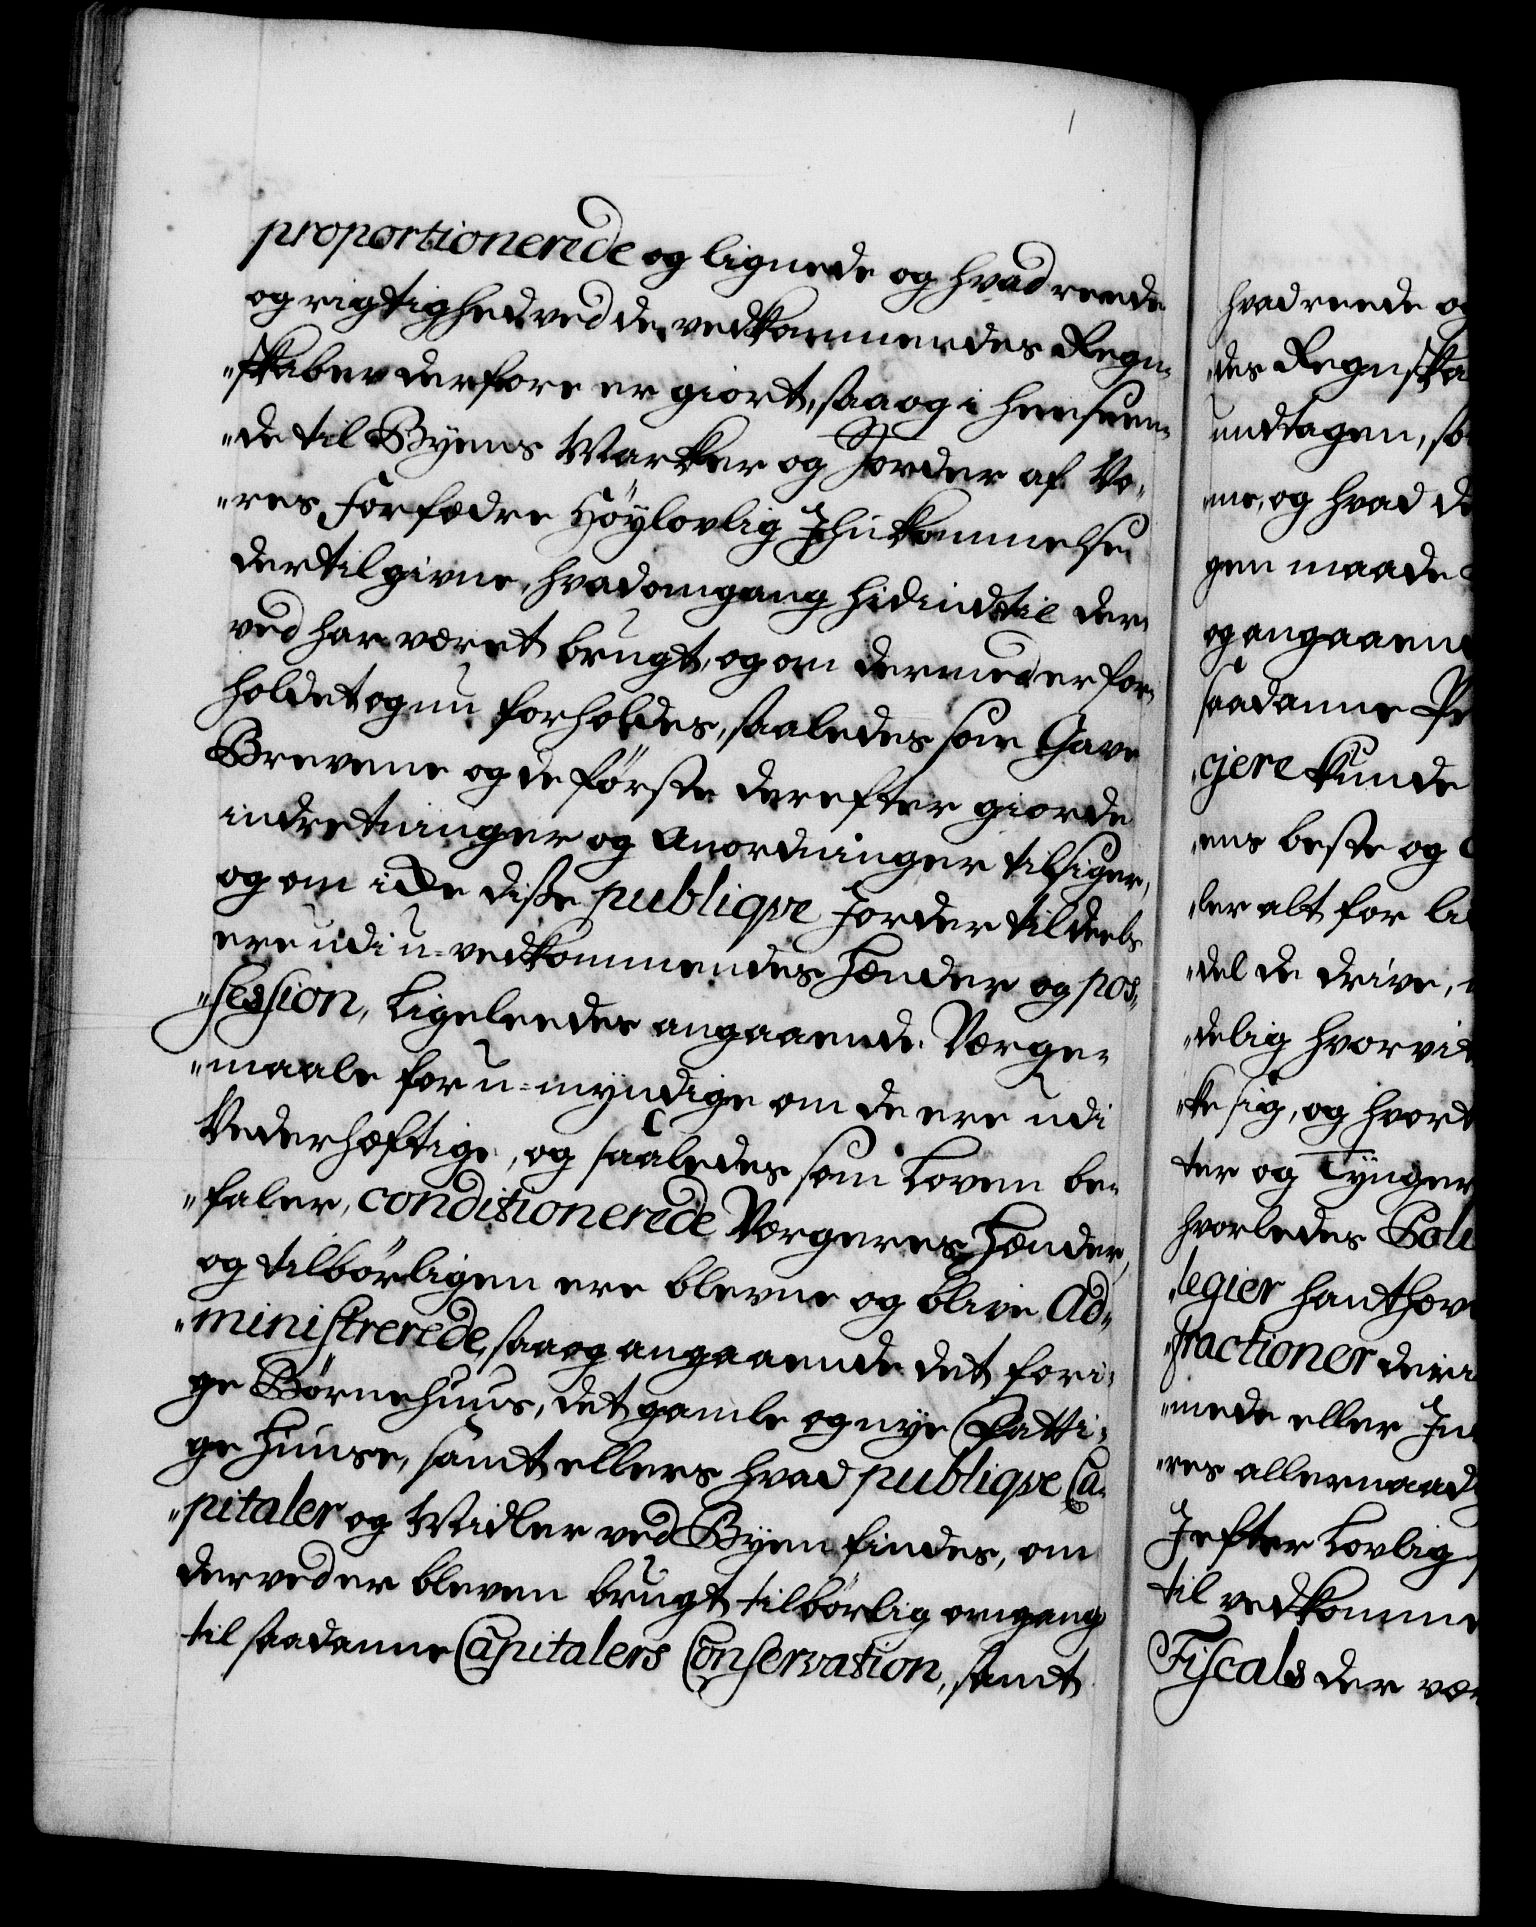 proportionerede og lignede og hvad reede
og rigtighed ved de vedkommendes Regn-
"skaber derfore er giort, saa og i henseen-
"de til Byens Marker og Jorder af Vo-
"res Forfædre Høylovlig Ihukommelse
dertil givne, hvad omgang hidindtil der-
ved har været brugt, og om dermed er for-
holdet og nu forholdes, saaledes som Gave
Brevene og de første derefter giorde
indretninger og Anordninger tilsiger,
og om icke disse publiqve Jorder til deels
ere udi u-vedkommendes Hænder og pos-
"session, Ligeleedes angaaende Værge-
"maale for u-myndige om de ere udi
Vederhæftige, og saaledes som Loven be-
"faler, conditionerede Værgeres Hænder,
og tilbørligen ere blevne og blive Ad-
"ministrerede, saa og angaaende det fori-
ge Børnehuus, det gamle og nye Fatti-
ge Huuse, samt ellers hvad publiqve Ca-
"pitaler og Midler ved Byen findes, om
derved er bleven brugt tilbørlig omgang
til saadanne Capitalers Conservation, samt
hvad reede og
"des Regnska
undtagen, so
"me, og hvad de
gen maade
og angaaend
saadanne Pr
"gere kunde
"ens beste og
"ler alt for li
"del de drive,
"delig hvorvit
"ke sig, og hvort
ter og Tynger
hvorledes Poli
"legier hanthæv
"fractioner deri
"mede eller In
"res allernaad
Jefter Lovlig
til vedkomme
Fiscals der væ